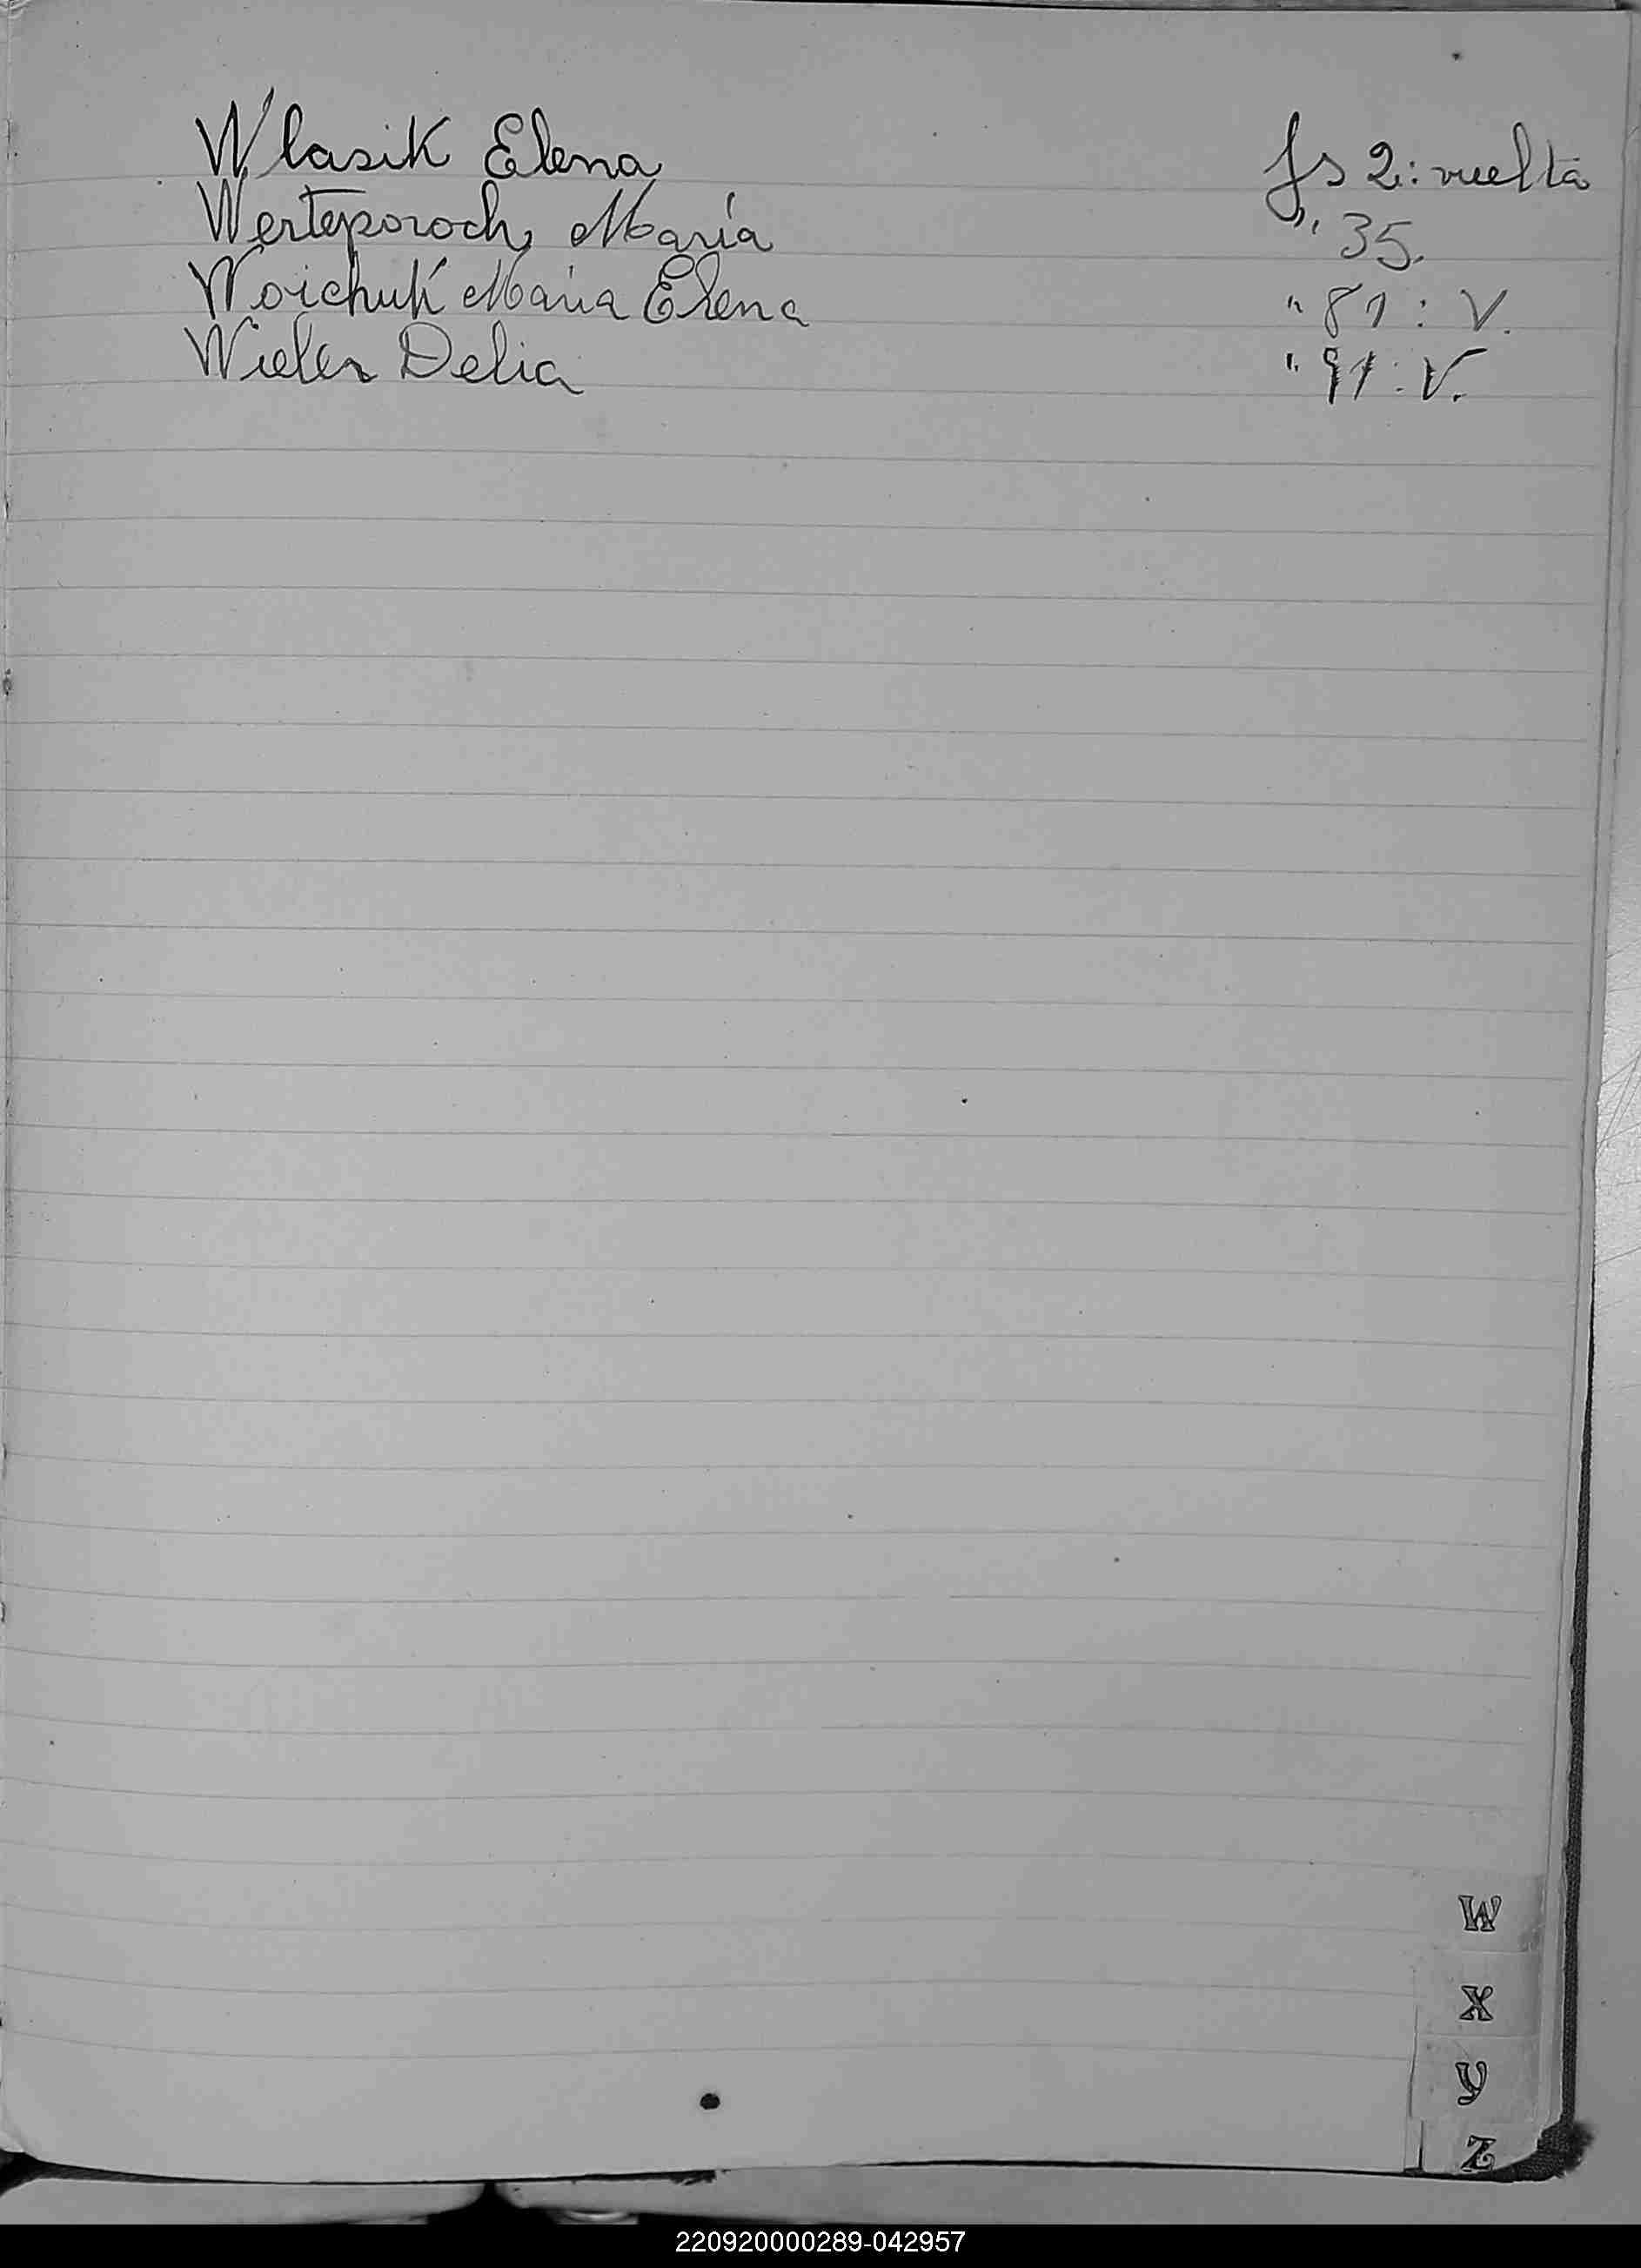 Wlasik Elena fs 2: vuelta
Werteporoch María " 35.
Woichuk María Elena " 81: V.
Wieler Delia " 91: V.
W
X
Y
Z
220920000289-042957